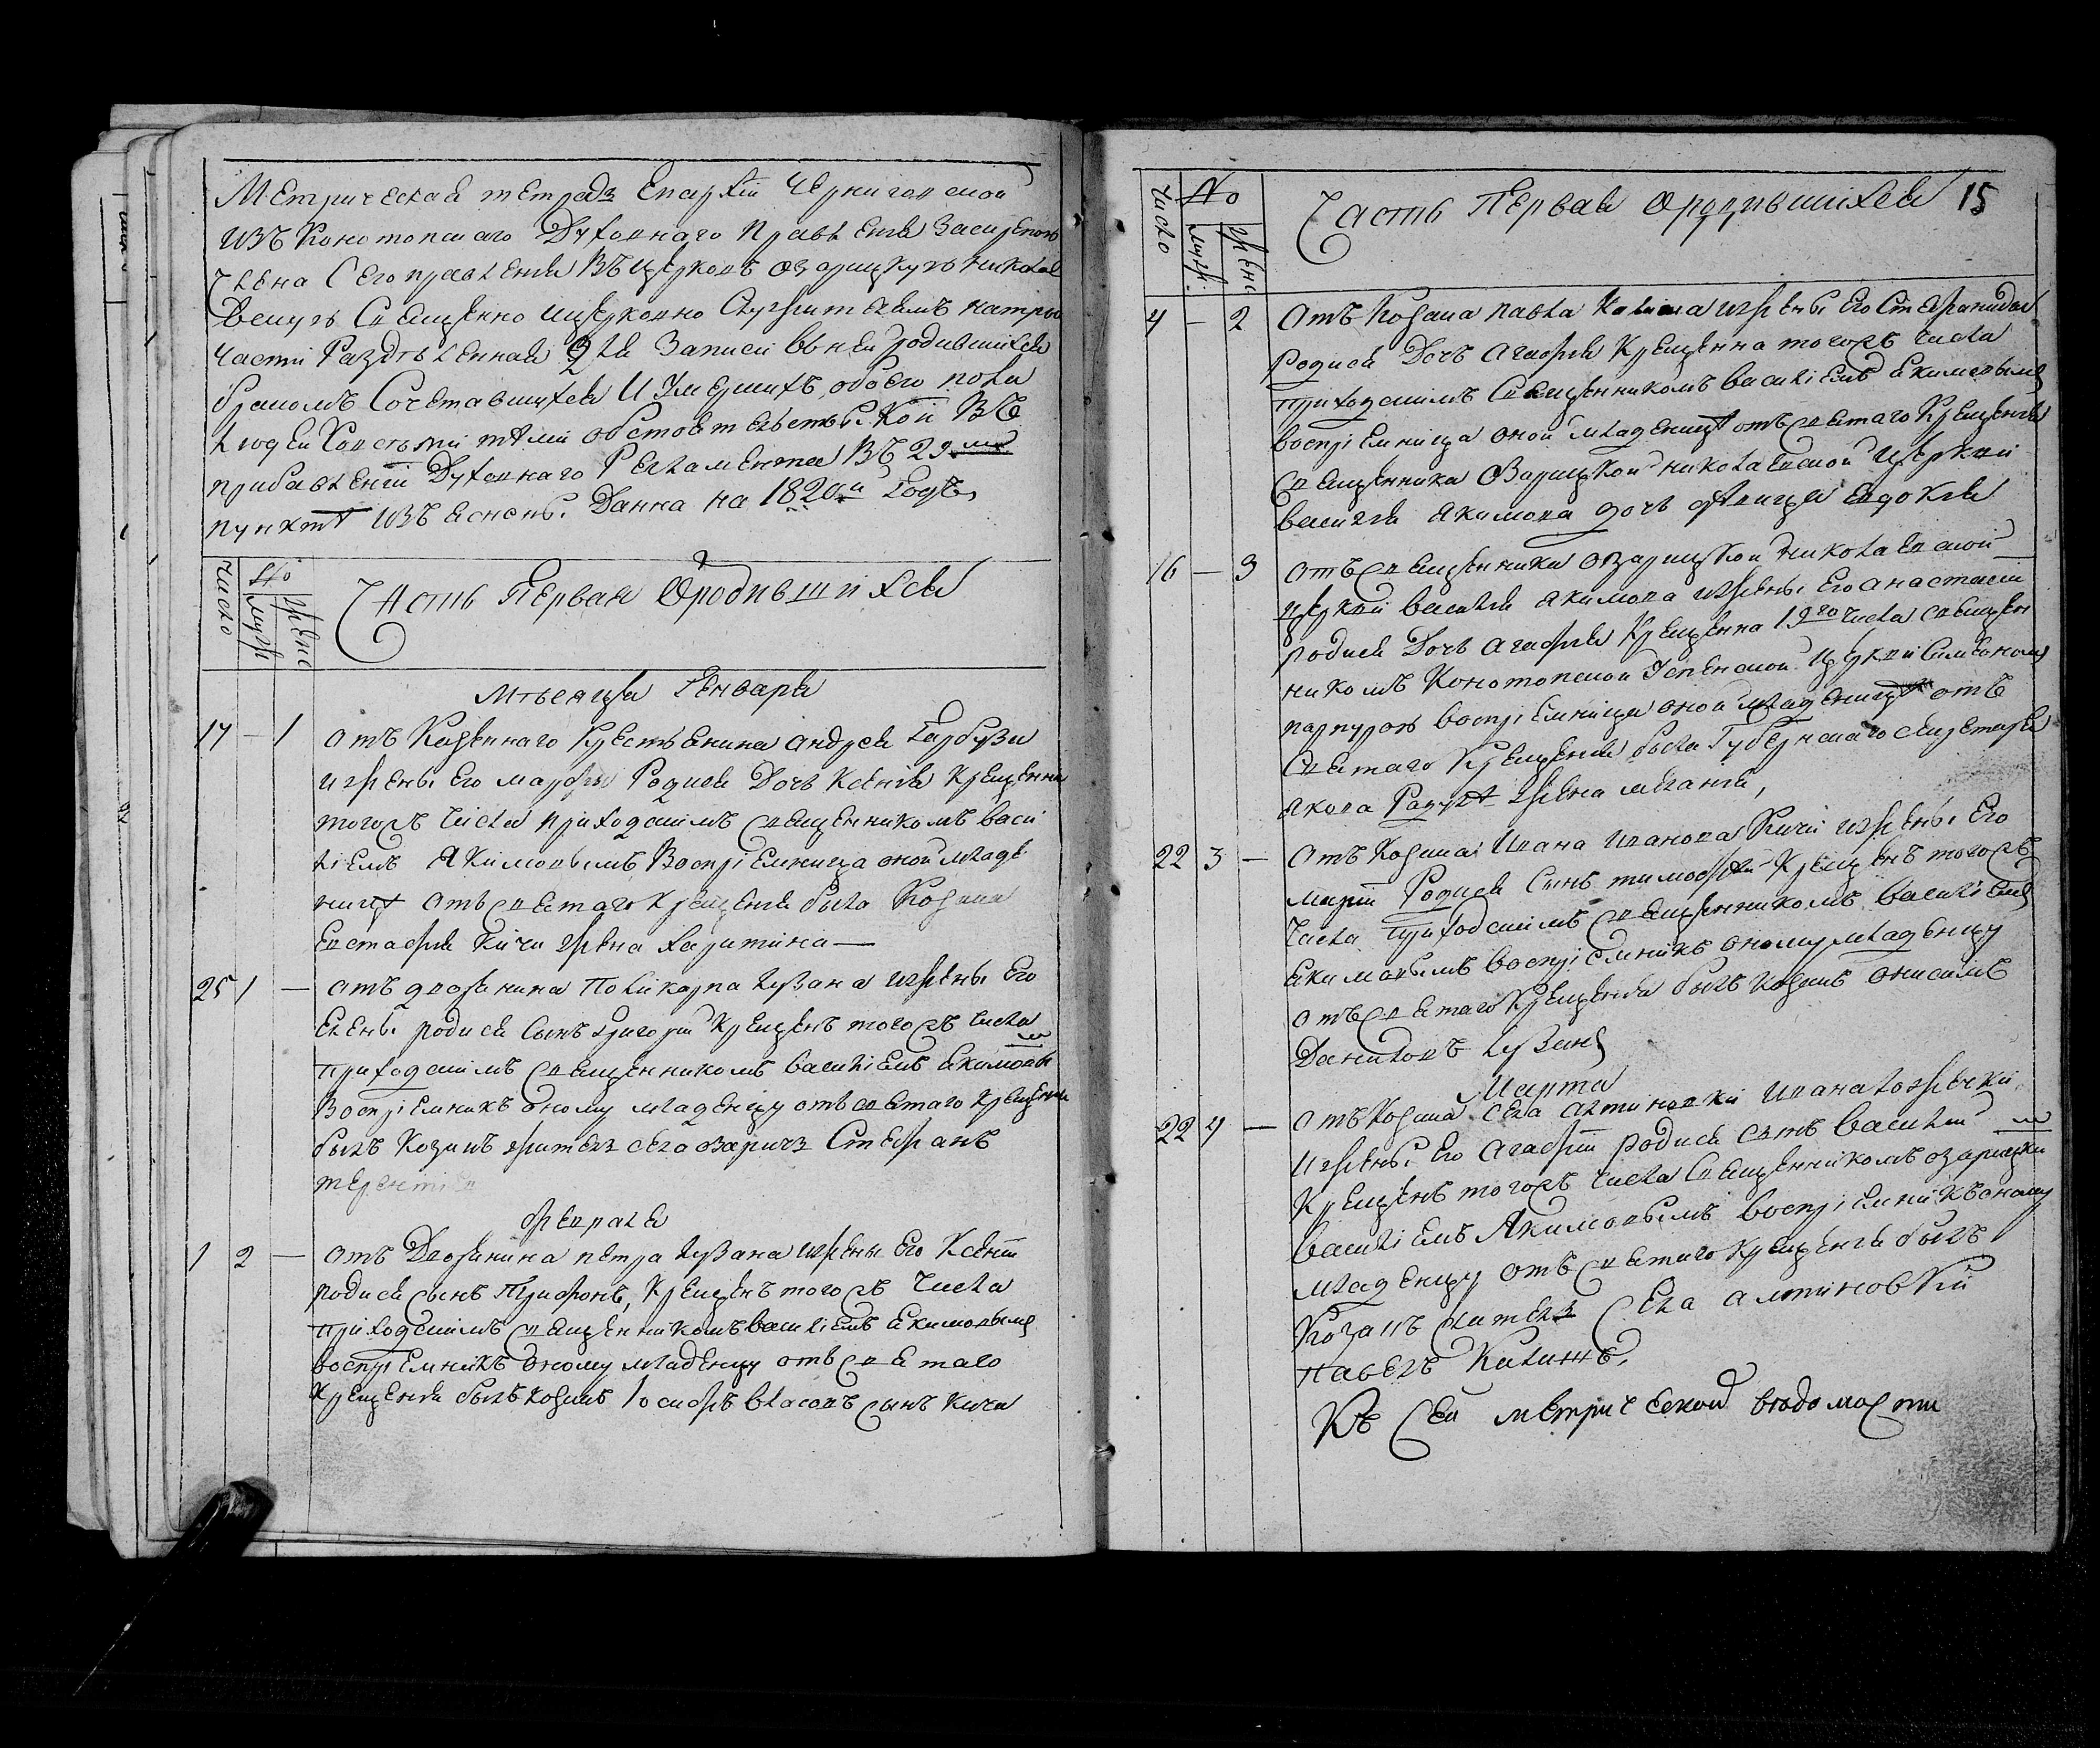 Метрическая тетрадь Епархїи Черниговской
изъ Конотопскаго Духовнаго Правленїя Заскрепою
Члена Сего правленїя Въ церковъ озарицкую николае
вскую Священно ицерковно Служителямъ натри
Части Раздѣленная для Записи вѣней родившихся
бракомъ Сочетавшихся И Умершихъ обоего пола
людей Собстоятелствы Кои Въ
прибавленїи Духовнаго Регламента Въ 29мъ
пунктѣ изъяснены. Данна на 1820й Годъ
Число
No
муж
женс
Часть Первая Ородившихся
Мѣсяца Генваря
17 — 1 отъ Казенного Крестьянина андрея Гарбуза
ижены Его марфы Родися Дочь Ксенїя Крещенна
тогожъ Числа приходскимъ Священникомъ васи
лїемъ Якимовымъ Воспрїемница оной младе
ницѣ отъ святаго Крещенїя была Козака
Евстафїя Кичи жена Харитина —
25 1 — отъ дворянина Поликарпа лузана ижены Его
Елены родися Сынъ Григорїй Крещенъ тогожъ числа
приходскимъ Священникомъ василїемъ Якимовы
м
Воспрїемникъ оному младенцу отъ святаго Крещенїя
былъ Козакъ житель села озаричъ Стефанъ
терентїев
февраля
1 2 — отъ Дворянина петра лузана ижены Его Ксенїи
родися сынъ Трифонъ, Крещенъ тогожъ Числа
приходскимъ Священникомъ василїемъ Якимовымъ
воспрїемникъ оному младенцу отъ Святаго
Крещенїя былъ козакъ Іосифъ власовъ сынъ Кичи
Число
No
муж.
женс
Часть Первая Ородившихся 15
4 — 2 Отъ Козака павла ижены Его Стефаниды
Родися Дочь агафїя Крещенна тогожъ числа
приходскимъ Священникомъ василїемъ Якимовымъ
воспрїемница оной младеницѣ отъ святаго Крещенїя
Священника Озарицкой николаевской церкви
василїя якимова дочь дѣвица евдокїя
16 — 3 отъ священника озарицкой николаевской
церкви василїя якимова ижены Его анастасїи
родися Дочь агафїя Крещенна 19го числа священ
никомъ Конотопской Успенской церкви Симеономъ
парпурою воспрїемница оной младеницѣ отъ
Святаго Крещенїя была Губернскаго секретаря
якова жена меланїя,
22 3 — отъ Козака Ивана Иванова Кичи ижены Его
марїи Родися Сынъ тимофей Крещенъ тогожъ
числа приходскимъ священникомъ василїемъ
якимовымъ воспрїемникъ оному младенцу
отъ святаго Крещенїя былъ козакъ онисимъ
Даниловъ лузанъ
Марта
22 4 — отъ Козака села алтиновки Ивана
ижены Его агафїи родися сынъ василїй
Крещенъ тогожъ числа Священникомъ озарицки
м
василїемъ Якимовымъ воспрїемникъ оному
младенцу отъ святаго Крещенїя былъ
Козакъ житель Села алтиновкїи
павелъ
Къ Сей метрической вѣдомости